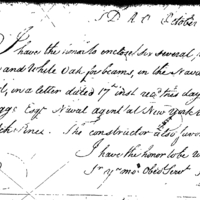 S D A C October
I have the honor to enclose Sir several
and White Oak for beams, in the Naval
in a letter dated 17th inst recd this day
ggs Esqr Naval agent at New York
tch Pines. The constructor also
I have the honor to be
Sr yr mo. Obdt Servt